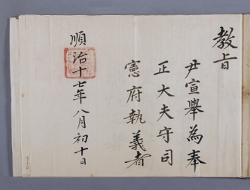 教旨
尹宣擧為奉
正大夫守司
憲府執義者
順治十七年八月初十日